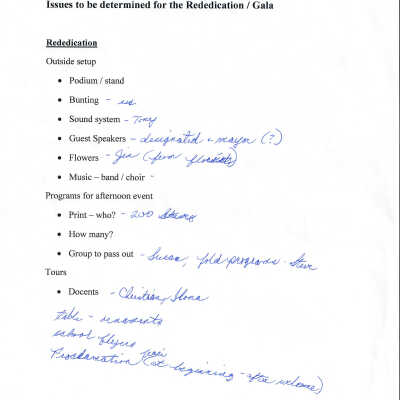 Issues to be determined for the Rededication / Gala
Rededication
Outside setup
• Podium / stand
• Bunting - us
• Sound system - Tony
• Guest Speakers - designated + mayor (?)
• Flowers - Jim (from florists)
• Music – band / choir -
Programs for afternoon event
• Print – who? - 200
• How many?
• Group to pass out - Susan, fold programs - Steve
Tours
• Docents - Christian,
table -
school flyers
Proclamation (at beginning - after welcome)